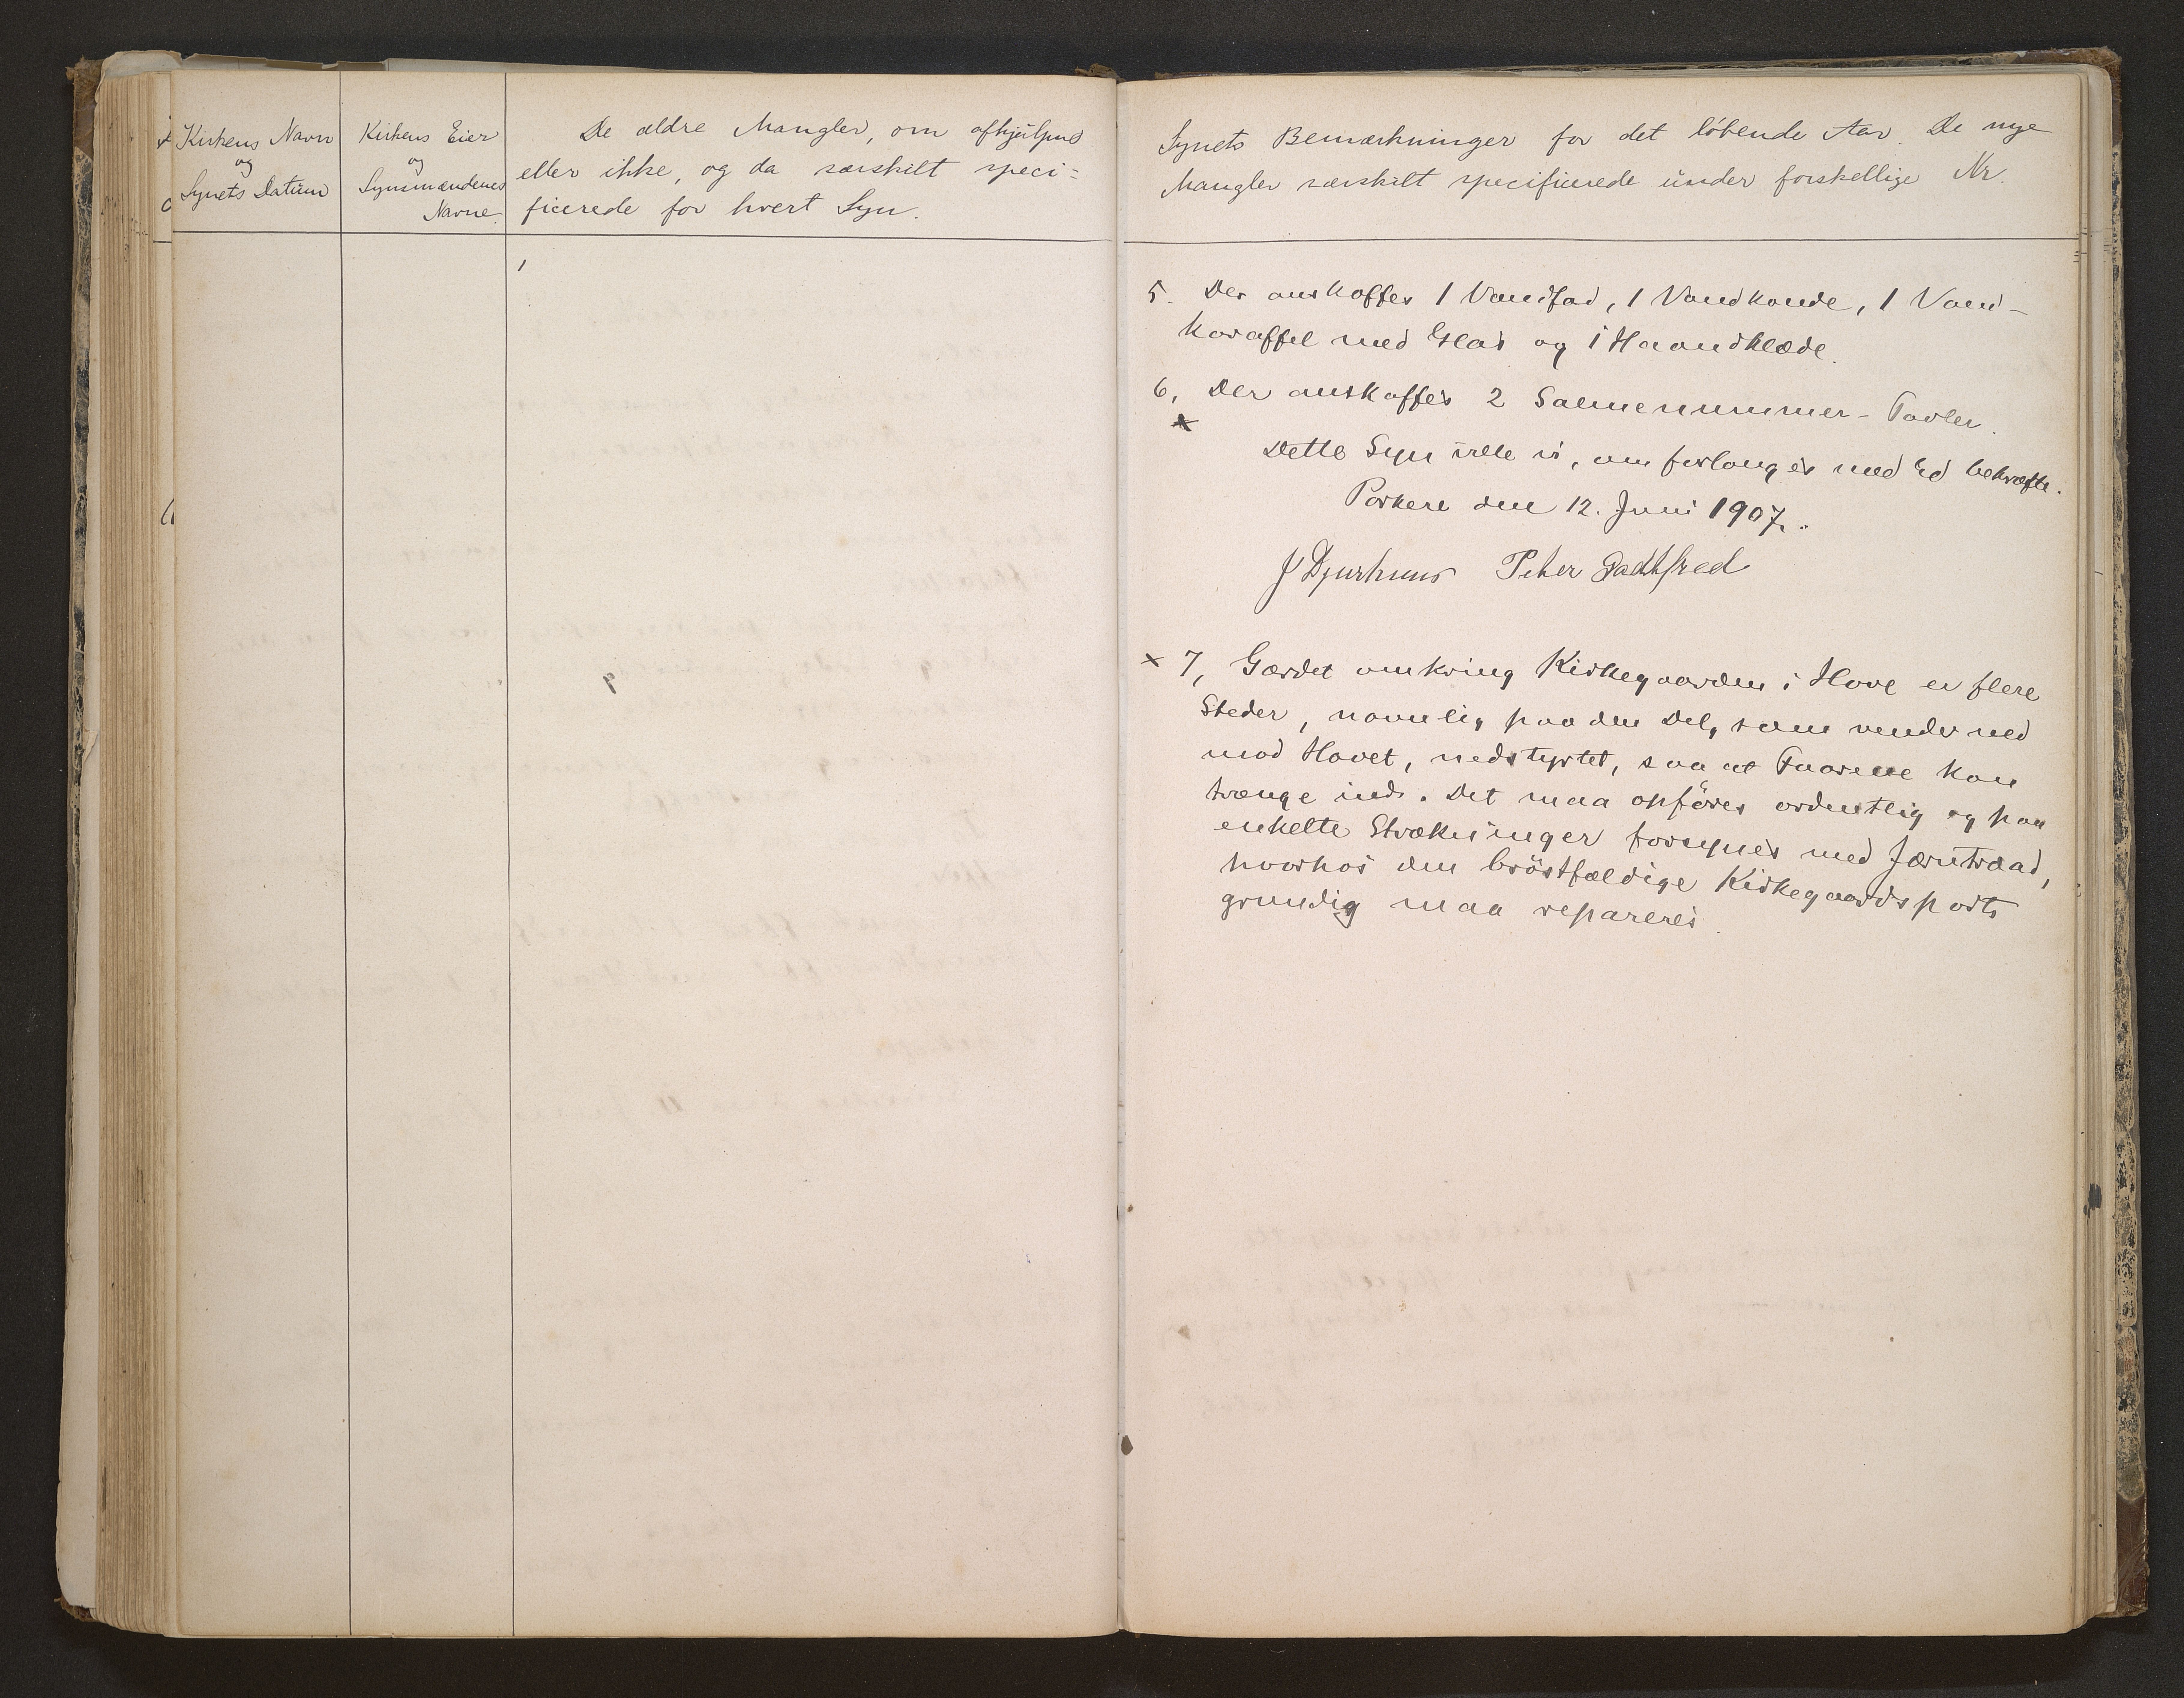 Kirkens Navn
og
Synets Datum
Kirkens Eier
og
Synsmændenes
Navne.
De ældre Mangler, om afhjulpne
eller ikke, og da særskilt speci=
ficerede for hvert Syn.
Synets Bemærkninger for det löbende Aar. De nye
Mangler særskilt specificerede under forskellige Nr.
5. Der anskaffes 1 Vandfad, 1 Vandkande, 1 Vand-
karaffel med Glas og 1 Haandklæde.
6, Der anskaffes 2 Salmenummer-Tavler.
x
Dette Syn ville vi, om forlanges med Ed bekræfte.
Porkere den 12. Juni 1907.
J Djurhuus Peter Gadtfred
x 7, Gærdet omkring Kirkegaarden i Hove er flere
Steder, navnlig paa den Del, som vender ned
mod Havet, nedstyrtet, saa at Faarene kan
trænge ind. Det maa opföres ordentlig og paa
enkelte Strækninger forsynes med Jærntraad,
hvorhos den bröstfældige Kirkegaardsport
grundig maa repareres.